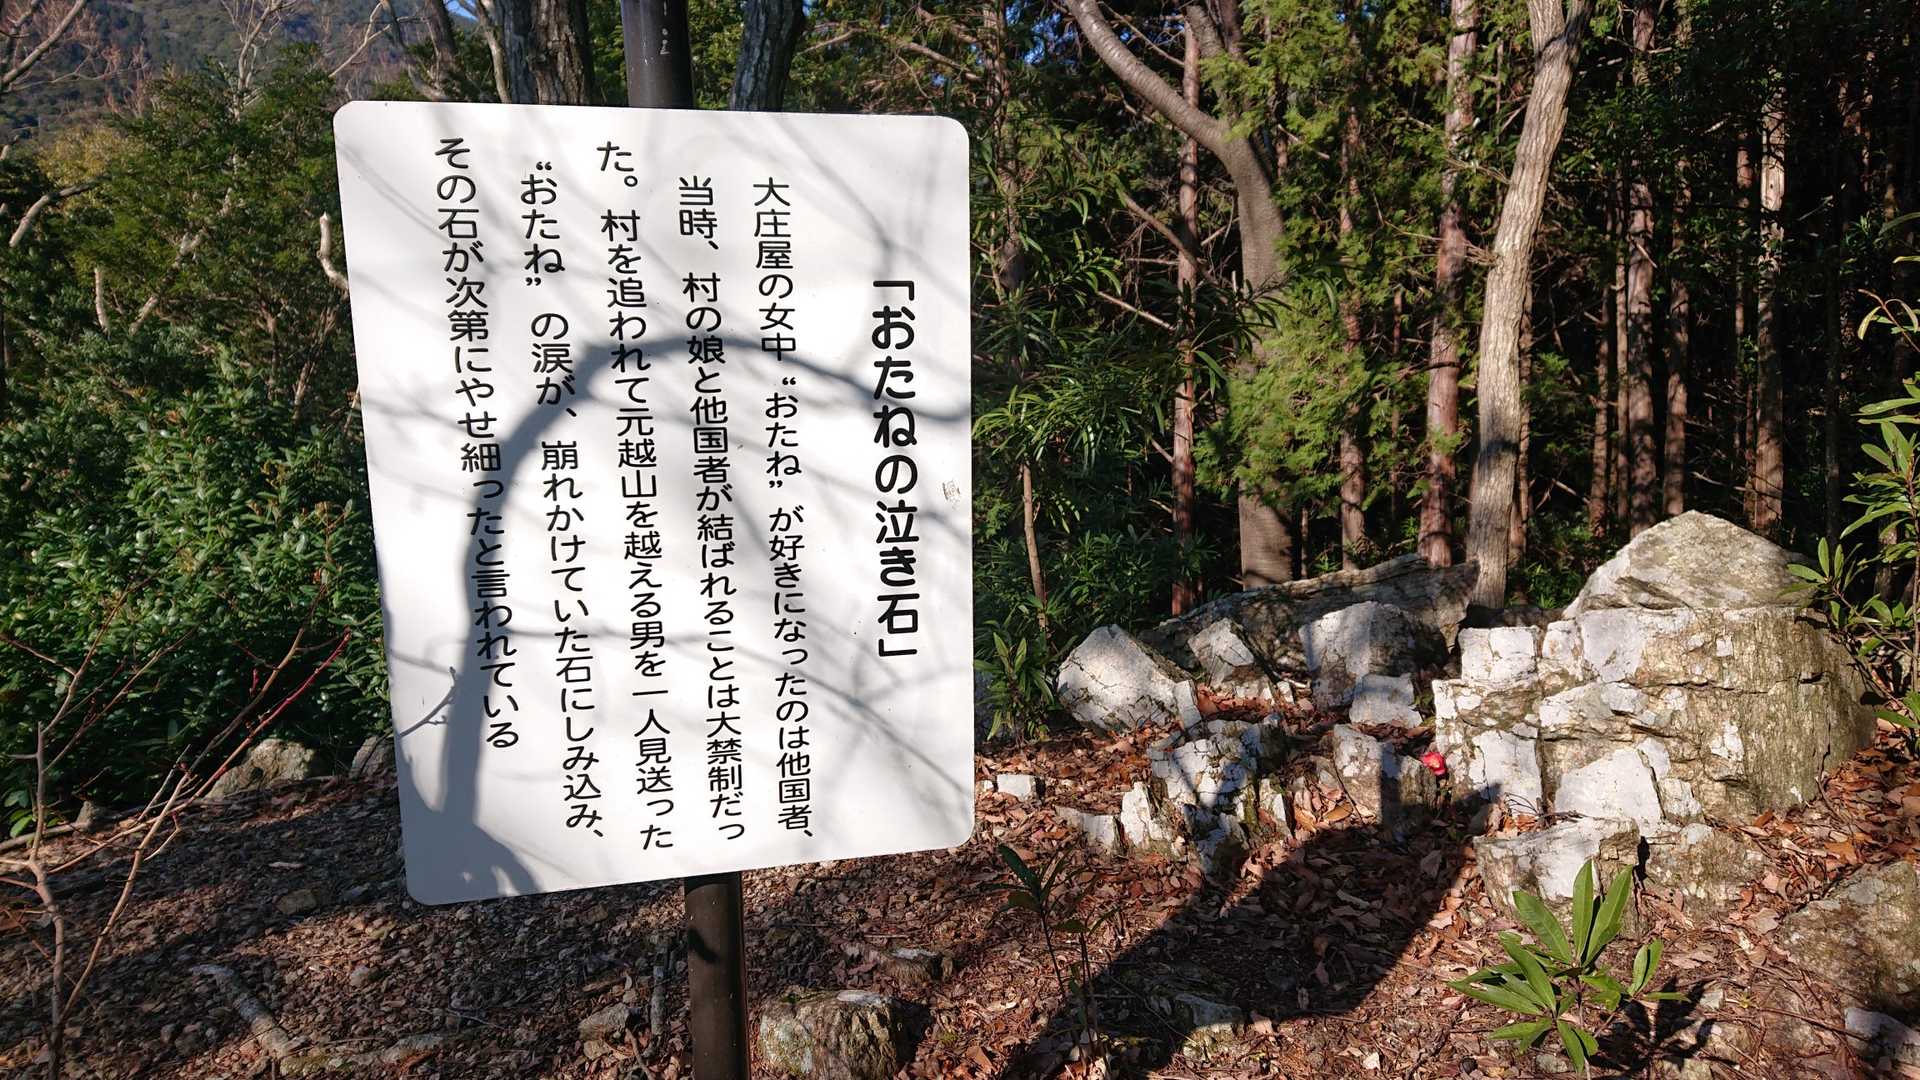 「おたねの泣き石」
大庄屋の女中“おたね”が好きになったのは他国者、
当時、村の娘と他国者が結ばれることは大禁制だっ
た。村を追われて元越山を越える男を一人見送った
“おたね”の涙が、崩れかけていた石にしみ込み、
その石が次第にやせ細ったと言われている